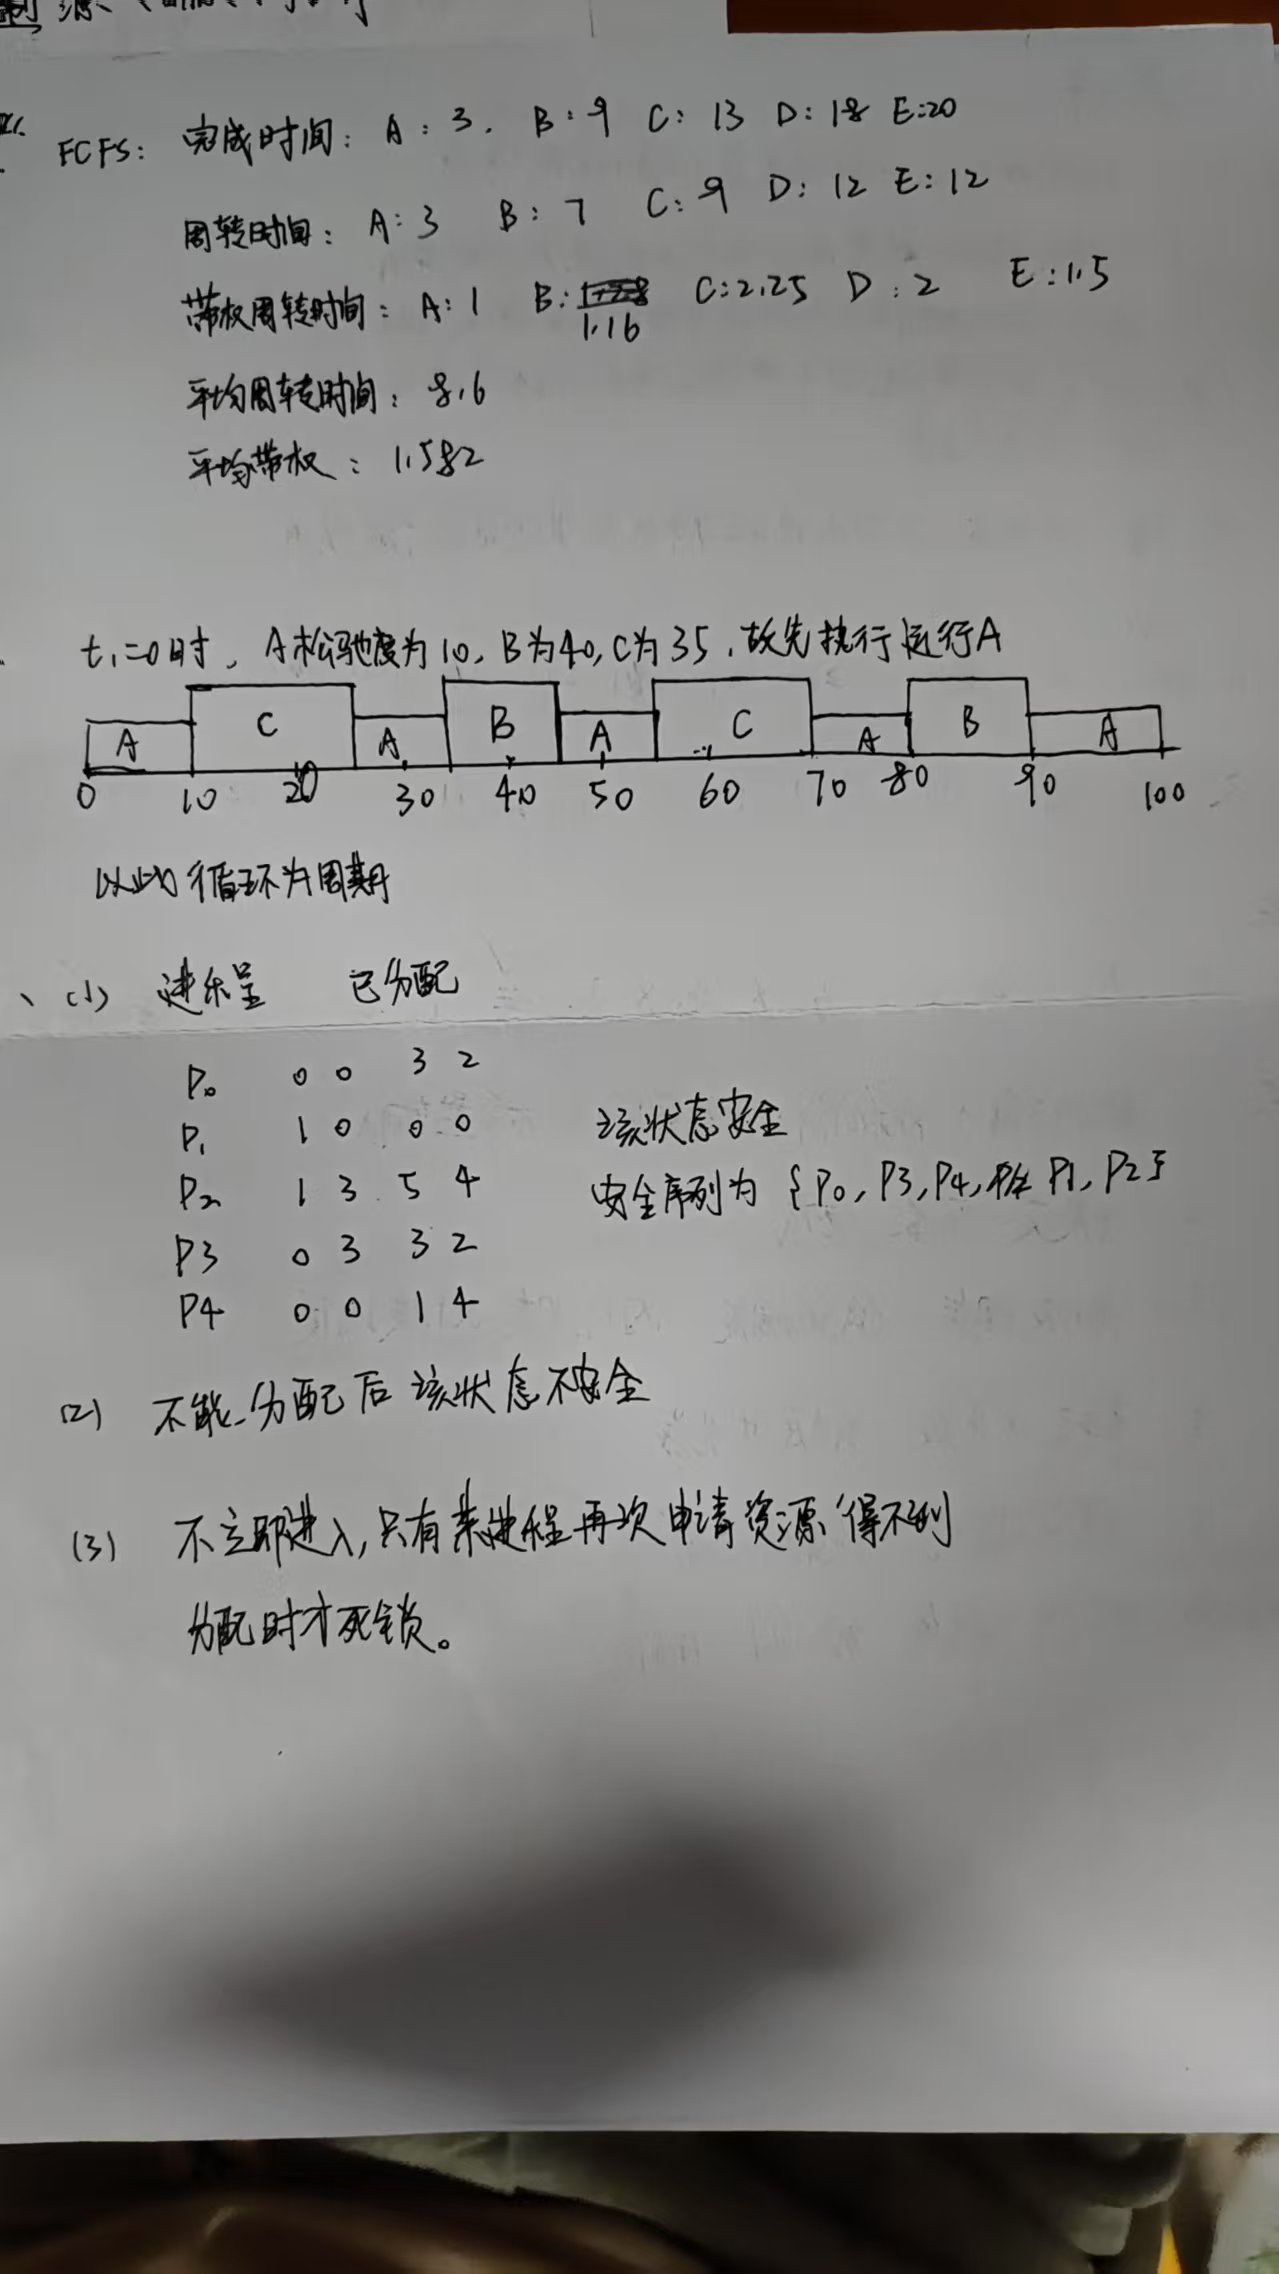 FCFS: 完成时间: A:3. B:9 C:13 D:18 E:20
周转时间: A:3 B:7 C:9 D:12 E:12
带权周转时间: A:1 B: 1.16 C:2.25 D:2 E:1.5
平均周转时间: 8.6
平均带权: 1.582
t₁=0时, A松弛度为10, B为40, C为35, 故先执行运行A
A C A B A C A B A
0 10 20 30 40 50 60 70 80 90 100
以此循环为周期
、(1) 进程 已分配
P₀ 0 0 3 2
P₁ 1 0 0 0 该状态安全
P₂ 1 3 5 4 安全序列为 {P₀, P3, P4, P1, P2}
P3 0 3 3 2
P4 0 0 1 4
(2) 不能分配后该状态不安全
(3) 不立即进入, 只有某进程再次申请资源得不到
分配时才死锁。